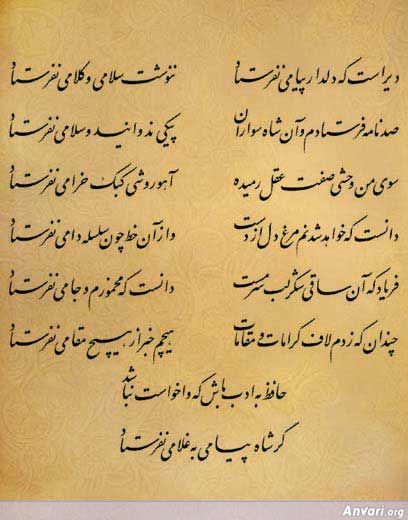 دیر است که دلدار پیامی نفرستاد ننوشت سلامی و کلامی نفرستاد
صد نامه فرستادم و آن شاه سواران پیکی ندوانید و سلامی نفرستاد
سوی من وحشی صفت عقل رمیده آهو روشی کبک خرامی نفرستاد
دانست که خواهد شدنم مرغ دل از دست و از آن خط چون سلسله دامی نفرستاد
فریاد که آن ساقی شکر لب سرمست دانست که مخمورم و جامی نفرستاد
چندان که زدم لاف کرامات و مقامات هیچم خبر از هیچ مقامی نفرستاد
حافظ به ادب باش که واخواست نباشد
گر شاه پیامی به غلامی نفرستاد
Anvari.org